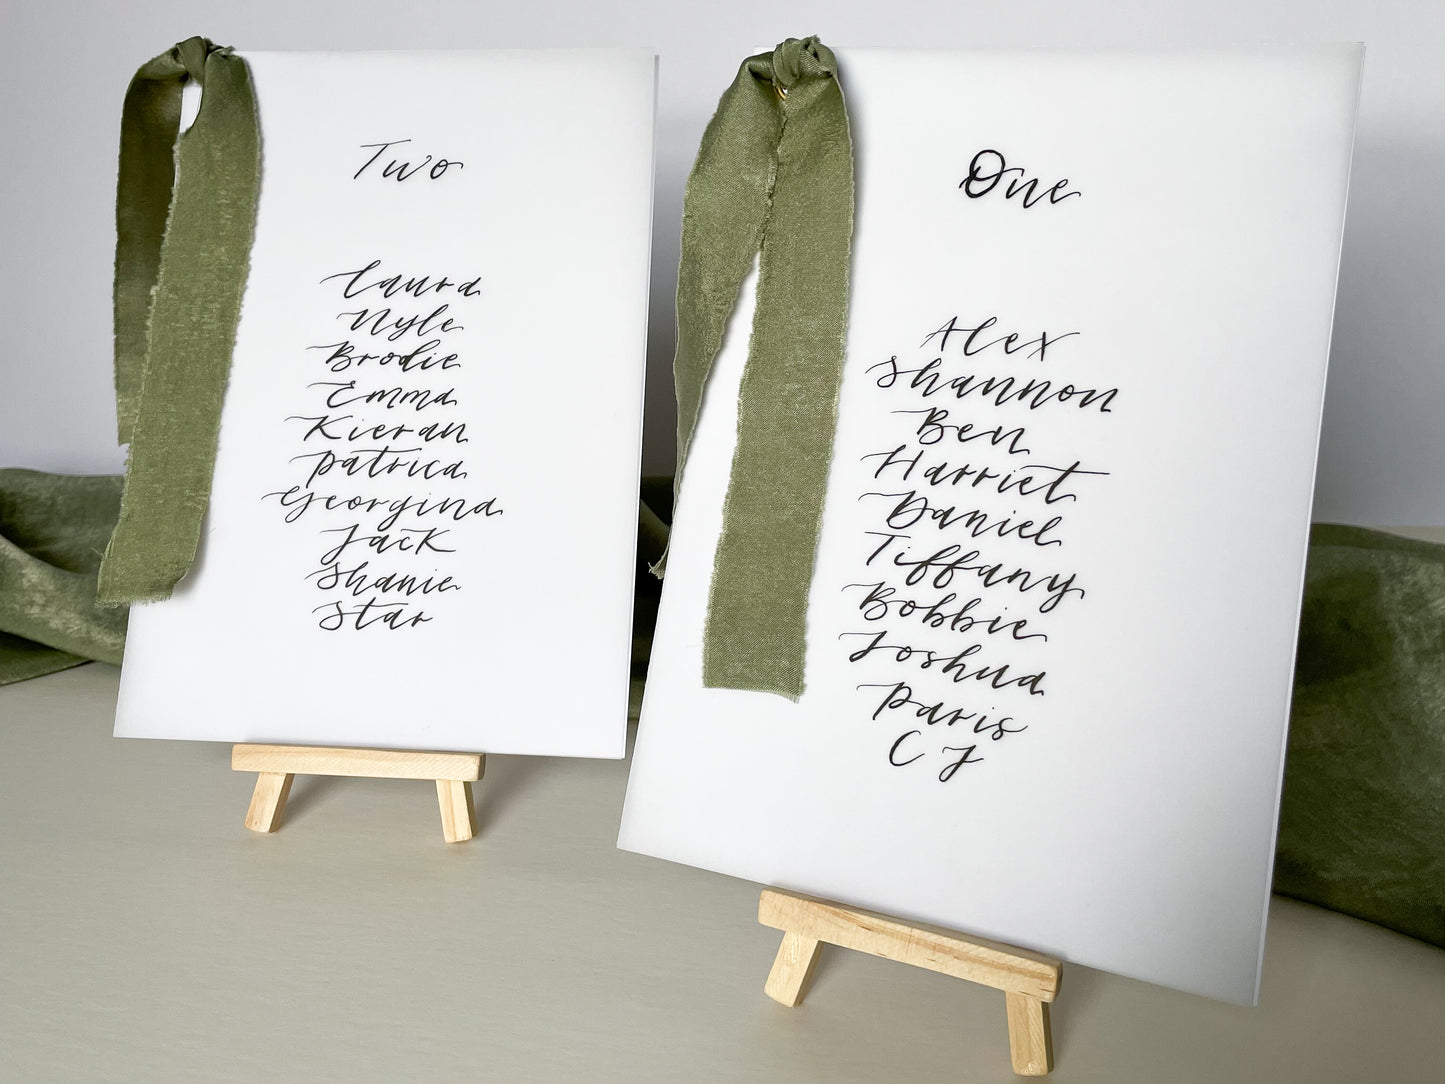 Two
Laura
Nyle
Brodie
Emma
Kieran
Patrica
Georgina
Jack
Shanie
Star
One
Alex
Shannon
Ben
Harriet
Daniel
Tiffany
Bobbie
Joshua
Paris
CJ